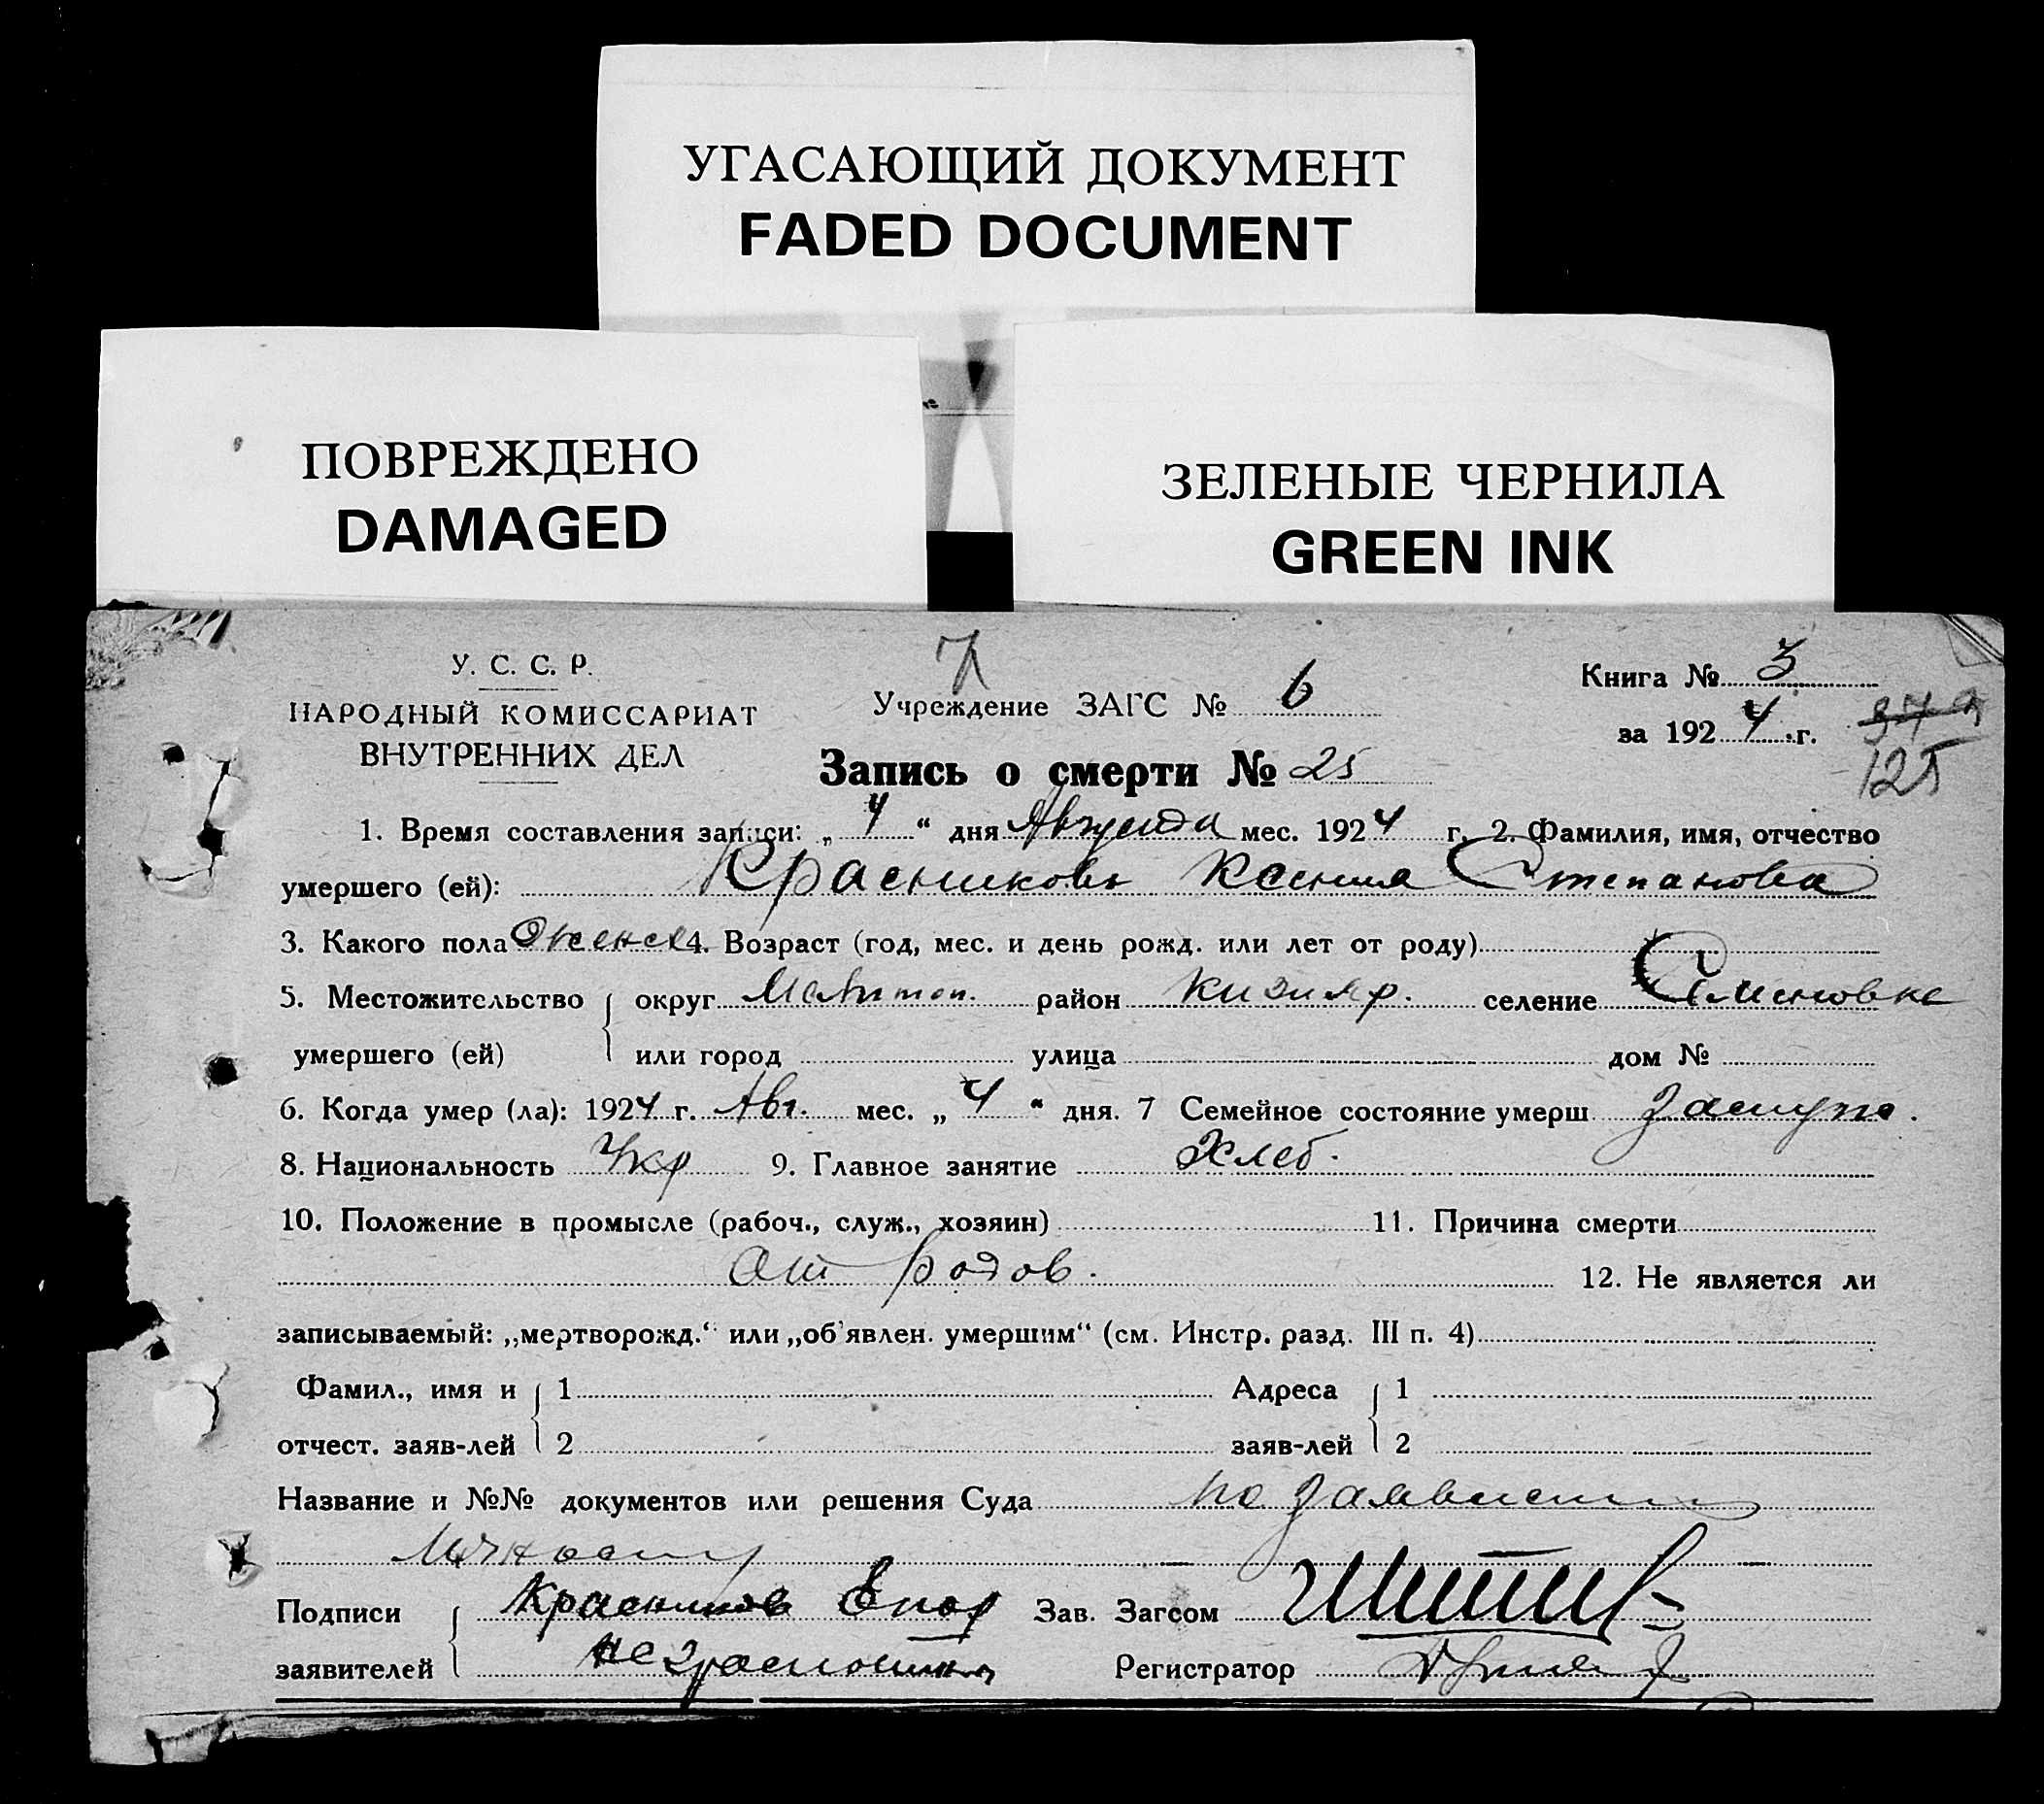 УГАСАЮЩИЙ ДОКУМЕНТ
FADED DOCUMENT
ПОВРЕЖДЕНО
DAMAGED
ЗЕЛЕНЫЕ ЧЕРНИЛА
GREEN INK
У. С. С. Р.
НАРОДНЫЙ КОМИССАРИАТ
ВНУТРЕННИХ ДЕЛ
7
Учреждение ЗАГС № 6
Книга № 3
за 1924 г.
125
Запись о смерти № 25
1. Время составления записи: „4“ дня Августа мес. 1924 г. 2. Фамилия, имя, отчество
умершего (ей): Красникова Ксения Степанова
3. Какого пола Женск 4. Возраст (год, мес. и день рожд. или лет от роду)
5. Местожительство округ Мелитоп. район Кизияр. селение Семеновке
умершего (ей) или город улица дом №
6. Когда умер (ла): 1924 г. Авг. мес. „4“ дня. 7 Семейное состояние умерш. Замужн.
8. Национальность Укр 9. Главное занятие Хлеб.
10. Положение в промысле (рабоч., служ., хозяин) 11. Причина смерти
От родов. 12. Не является ли
записываемый: „мертворожд.“ или „об'явлен. умершим“ (см. Инстр. разд. III п. 4)
Фамил., имя и 1 Адреса 1
отчест. заяв-лей 2 заяв-лей 2
Название и №№ документов или решения Суда по
Подписи Красников Зав. Загсом
заявителей Регистратор